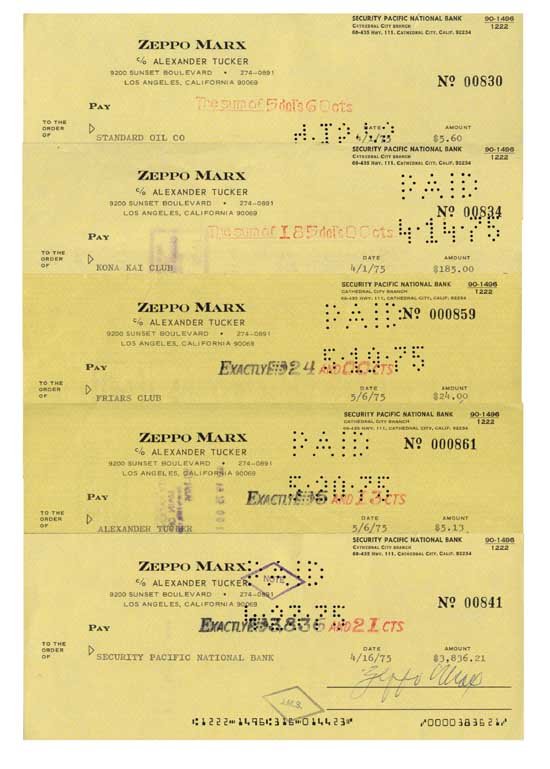 SECURITY PACIFIC NATIONAL BANK 90-1496
CATHEDRAL CITY BRANCH 1222
68-435 HWY. 111, CATHEDRAL CITY, CALIF. 92234
ZEPPO MARX
C/O ALEXANDER TUCKER
9200 SUNSET BOULEVARD • 274-0891
LOS ANGELES, CALIFORNIA 90069
Nº 00830
PAY The sum of 5 dol's 60 cts
TO THE ORDER OF
STANDARD OIL CO
DATE AMOUNT
4/1/75 $5.60
SECURITY PACIFIC NATIONAL BANK 90-1496
CATHEDRAL CITY BRANCH 1222
68-435 HWY. 111, CATHEDRAL CITY, CALIF. 92234
ZEPPO MARX
C/O ALEXANDER TUCKER
9200 SUNSET BOULEVARD • 274-0891
LOS ANGELES, CALIFORNIA 90069
PAID
Nº 00834
4·14·75
PAY The sum of 185 dol's 00 cts
TO THE ORDER OF
KONA KAI CLUB
DATE AMOUNT
4/1/75 $185.00
SECURITY PACIFIC NATIONAL BANK 90-1496
CATHEDRAL CITY BRANCH 1222
68-435 HWY. 111, CATHEDRAL CITY, CALIF. 92234
ZEPPO MARX
C/O ALEXANDER TUCKER
9200 SUNSET BOULEVARD • 274-0891
LOS ANGELES, CALIFORNIA 90069
PAID
Nº 000859
PAY EXACTLY 24 AND 00 CTS
TO THE ORDER OF
FRIARS CLUB
DATE AMOUNT
5/6/75 $24.00
SECURITY PACIFIC NATIONAL BANK 90-1496
CATHEDRAL CITY BRANCH 1222
68-435 HWY. 111, CATHEDRAL CITY, CALIF. 92234
ZEPPO MARX
C/O ALEXANDER TUCKER
9200 SUNSET BOULEVARD • 274-0891
LOS ANGELES, CALIFORNIA 90069
PAID
Nº 000861
PAY EXACTLY 5 AND 13 CTS
TO THE ORDER OF
ALEXANDER TUCKER
DATE AMOUNT
5/6/75 $5.13
SECURITY PACIFIC NATIONAL BANK 90-1496
CATHEDRAL CITY BRANCH 1222
68-435 HWY. 111, CATHEDRAL CITY, CALIF. 92234
ZEPPO MARX
C/O ALEXANDER TUCKER
9200 SUNSET BOULEVARD • 274-0891
LOS ANGELES, CALIFORNIA 90069
PAID
NOTE
Nº 00841
PAY EXACTLY 3,836 AND 21 CTS
TO THE ORDER OF
SECURITY PACIFIC NATIONAL BANK
DATE AMOUNT
4/16/75 $3,836.21
Zeppo Marx
J.M.S.
1222 1496 316 014423 0000383621